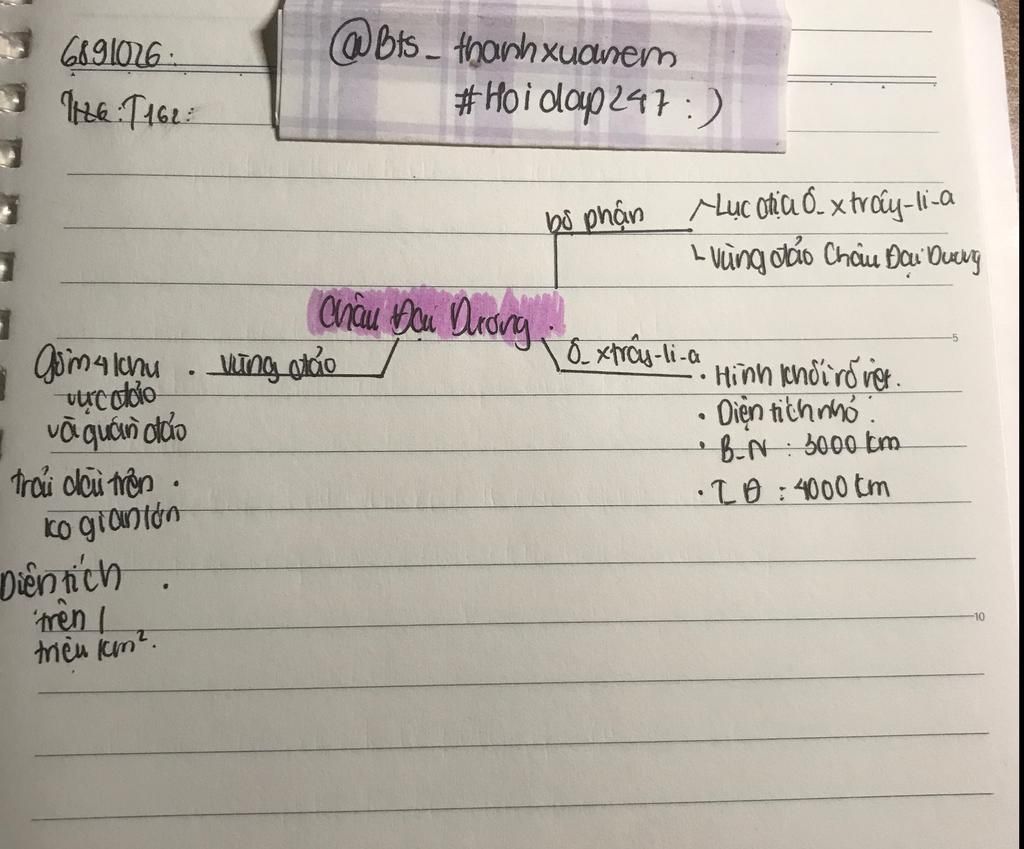 6891026.
T162:
@Bts_thanhxuanem
#Hoidap247:)
bộ phận
Lục địa Ô_xtrây-li-a
Vùng đảo Châu Đại Dương
Châu Đại Dương.
Vùng đảo
Gồm 4 khu
vực đảo
và quần đảo
trải dài trên
ko gian lớn
Diện tích
trên 1
triệu km².
Ô_xtrây-li-a
Hình khối rõ rệt.
Diện tích nhỏ.
B-N : 3000 km
T Đ : 4000 km
5
10